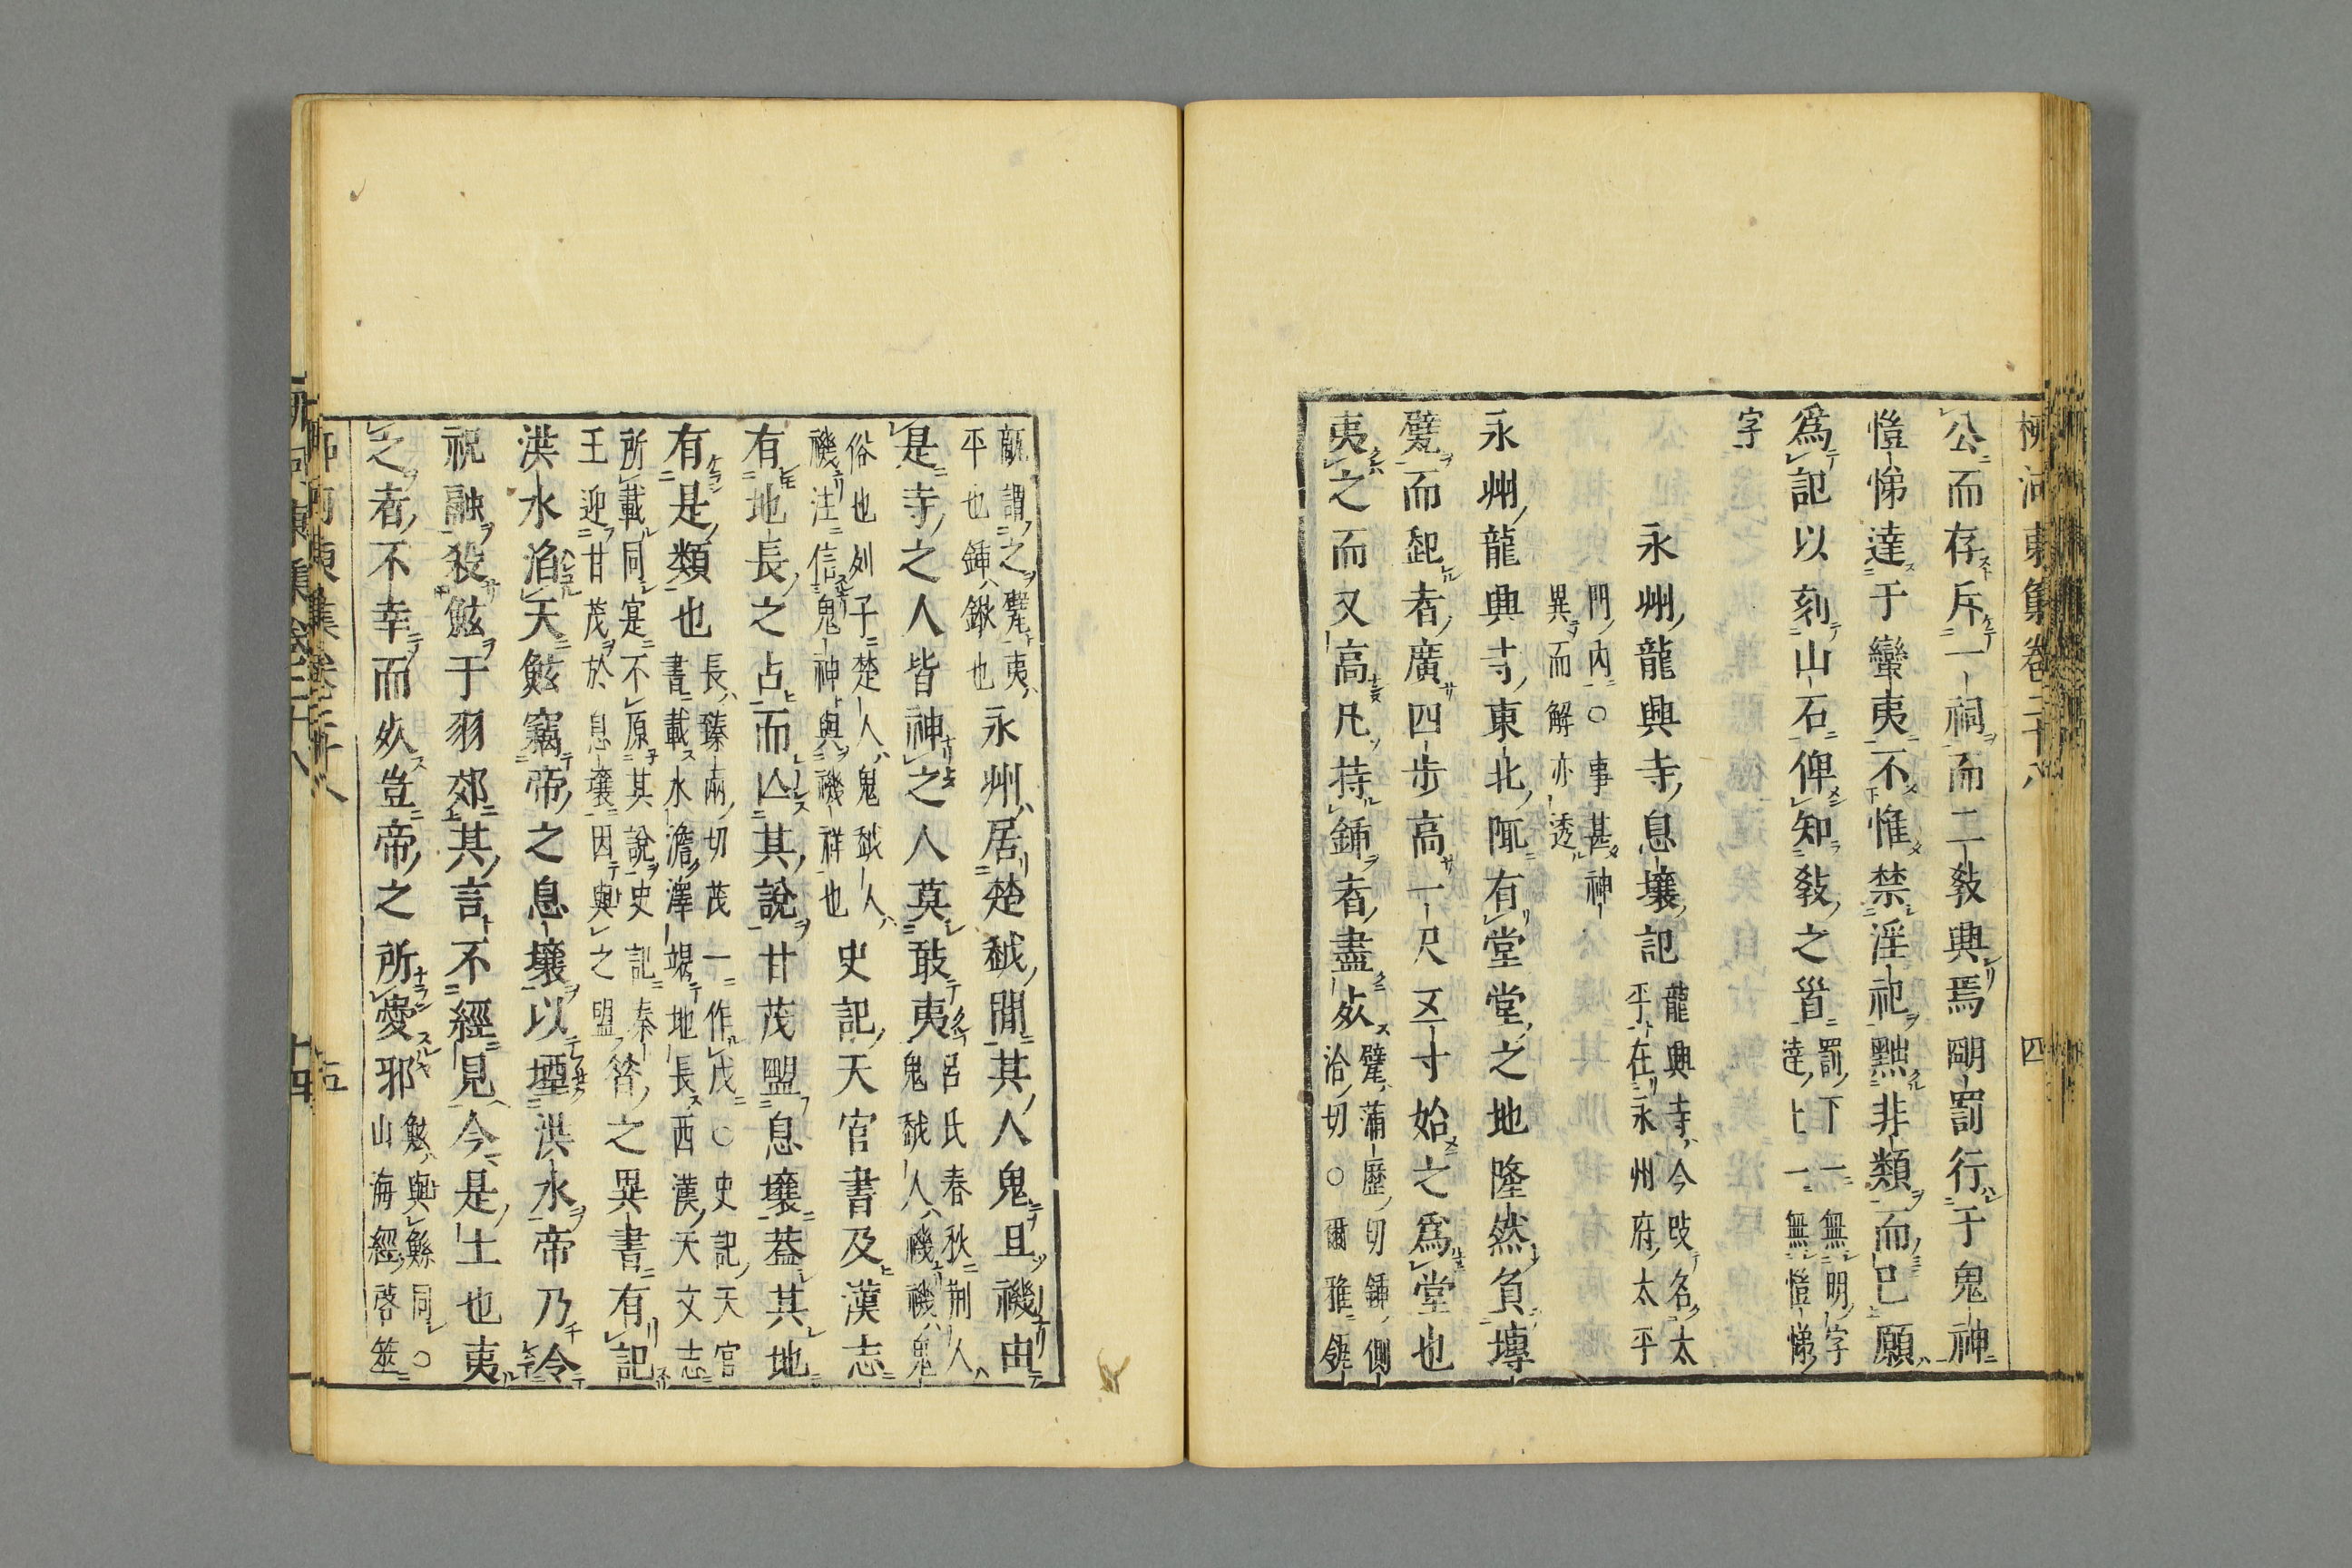 柳河東集卷二十八　四
公而存斥一祠而二敎興焉明罰行于鬼神
愷悌達于蠻夷不惟禁淫祀黜非類而已願
爲記以刻山石俾知敎之首罰下一無明字達上一無愷悌
字
永州龍興寺息壤記龍興寺今改名太平寺在永州府太平
門内○事甚神異而解亦透
永州龍興寺東北陬有堂堂之地隆然負塼
甓而起者廣四步高一尺五寸始之爲堂也
夷之而又高凡持鍤者盡死甓蒲歷切鍤側洽切○爾雅
瓹謂之甓夷平也鍤鍬也永州居楚越間其人鬼且禨由
是寺之人皆神之人莫敢夷呂氏春秋荆人鬼越人禨禨鬼
俗也列子楚人鬼越人禨注信鬼神與禨祥也史記天官書及漢志
有地長之占而亡其說甘茂盟息壤蓋其地
有是類也長臻兩切茂一作戊○史記天官書載水澹澤竭地長西漢天文志
所載同寔不原其說史記秦王迎甘茂於息壤因與之盟答之異書有記
洪水滔天鮌竊帝之息壤以堙洪水帝乃令
祝融殺鮌于羽郊其言不經見今是土也夷
之者不幸而死豈帝之所愛邪鮌與鯀同○山海經啓筮
柳河東集卷二十八　五